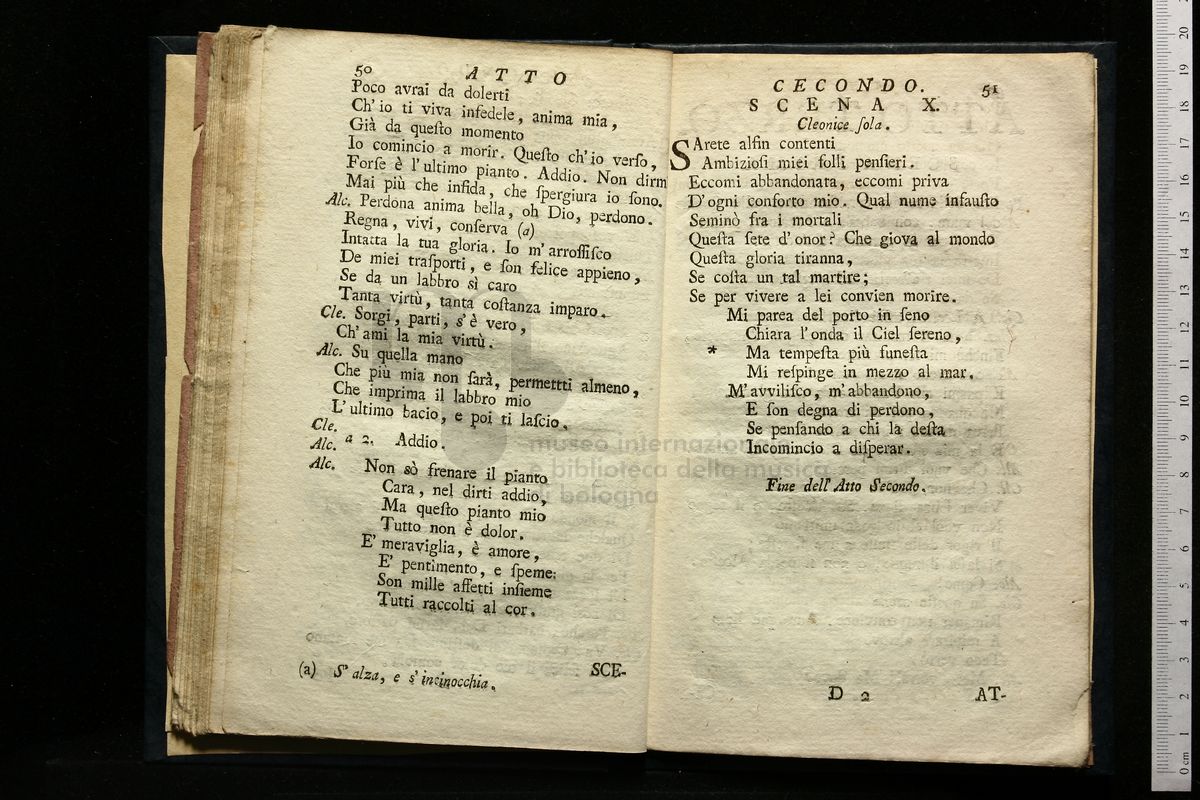 50 ATTO
Poco avrai da dolerti
Ch'io ti viva infedele, anima mia,
Già da queſto momento
Io comincio a morir. Queſto ch'io verſo,
Forſe è l'ultimo pianto. Addio. Non dirm
Mai più che infida, che ſpergiura io ſono.
Alc. Perdona anima bella, oh Dio, perdono.
Regna, vivi, conſerva (a)
Intatta la tua gloria. Io m'arroſſiſco
De miei traſporti, e ſon felice appieno,
Se da un labbro sì caro
Tanta virtù, tanta coſtanza imparo.
Cle. Sorgi, parti, s'è vero,
Ch'ami la mia virtù.
Alc. Su quella mano
Che più mia non ſarà, permettti almeno,
Che imprima il labbro mio
L'ultimo bacio, e poi ti laſcio.
Cle.
Alc. a 2. Addio.
Alc. Non sò frenare il pianto
Cara, nel dirti addio,
Ma queſto pianto mio
Tutto non è dolor.
E' meraviglia, è amore,
E' pentimento, e ſpeme:
Son mille affetti inſieme
Tutti raccolti al cor.
(a) S'alza, e s'incinocchia.
SCE-
CECONDO. 51
SCENA X.
Cleonice ſola.
SArete alfin contenti
Ambizioſi miei folli penſieri.
Eccomi abbandonata, eccomi priva
D'ogni conforto mio. Qual nume infauſto
Seminò fra i mortali
Queſta ſete d'onor? Che giova al mondo
Queſta gloria tiranna,
Se coſta un tal martire;
Se per vivere a lei convien morire.
Mi parea del porto in ſeno
Chiara l'onda il Ciel ſereno,
* Ma tempeſta più funeſta
Mi reſpinge in mezzo al mar.
M'avviliſco, m'abbandono,
E ſon degna di perdono,
Se penſando a chi la deſta
Incomincio a diſperar.
Fine dell'Atto Secondo.
D 2 AT-
museo internazionale
e biblioteca della musica
di bologna
0 cm 1 2 3 4 5 6 7 8 9 10 11 12 13 14 15 16 17 18 19 20